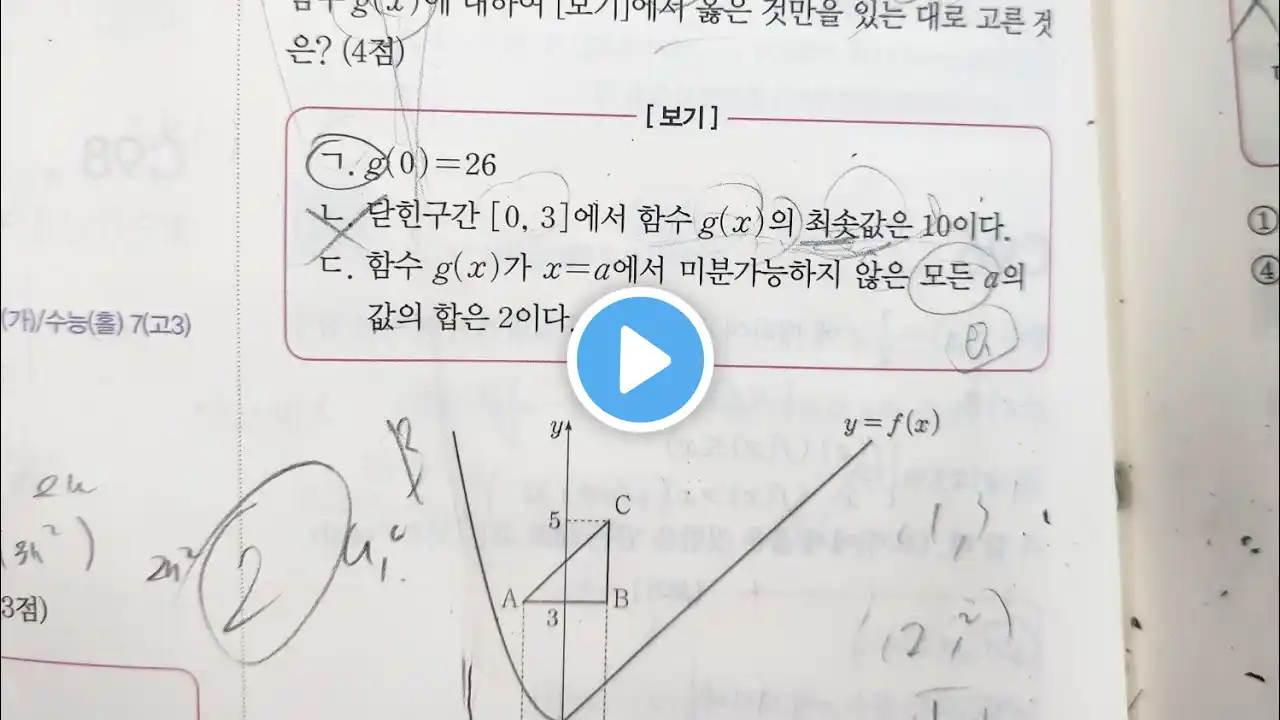 함수 g(x)에 대하여 [보기]에서 옳은 것만을 있는 대로 고른 것
은? (4점)
[보기]
ㄱ. g(0)=26
ㄴ. 닫힌구간 [0, 3]에서 함수 g(x)의 최솟값은 10이다.
ㄷ. 함수 g(x)가 x=a에서 미분가능하지 않은 모든 a의
값의 합은 2이다.
(가)/수능(홀) 7(고3)
①
④
y
y=f(x)
C
5
A
B
3
2
3점)